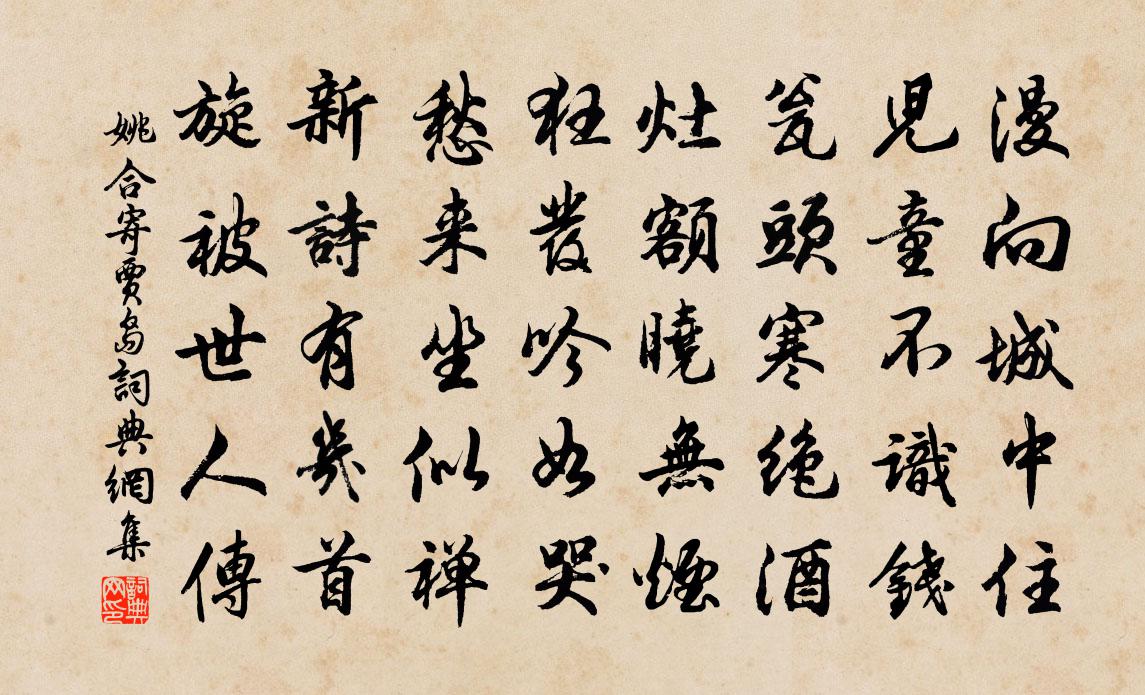 漫向城中住
兒童不識錢
瓮頭寒绝酒
灶額曉無煙
狂發吟如哭
愁来坐似禅
新詩有幾首
旋被世人傳
姚合寄賈島詞典網集
詞典网印